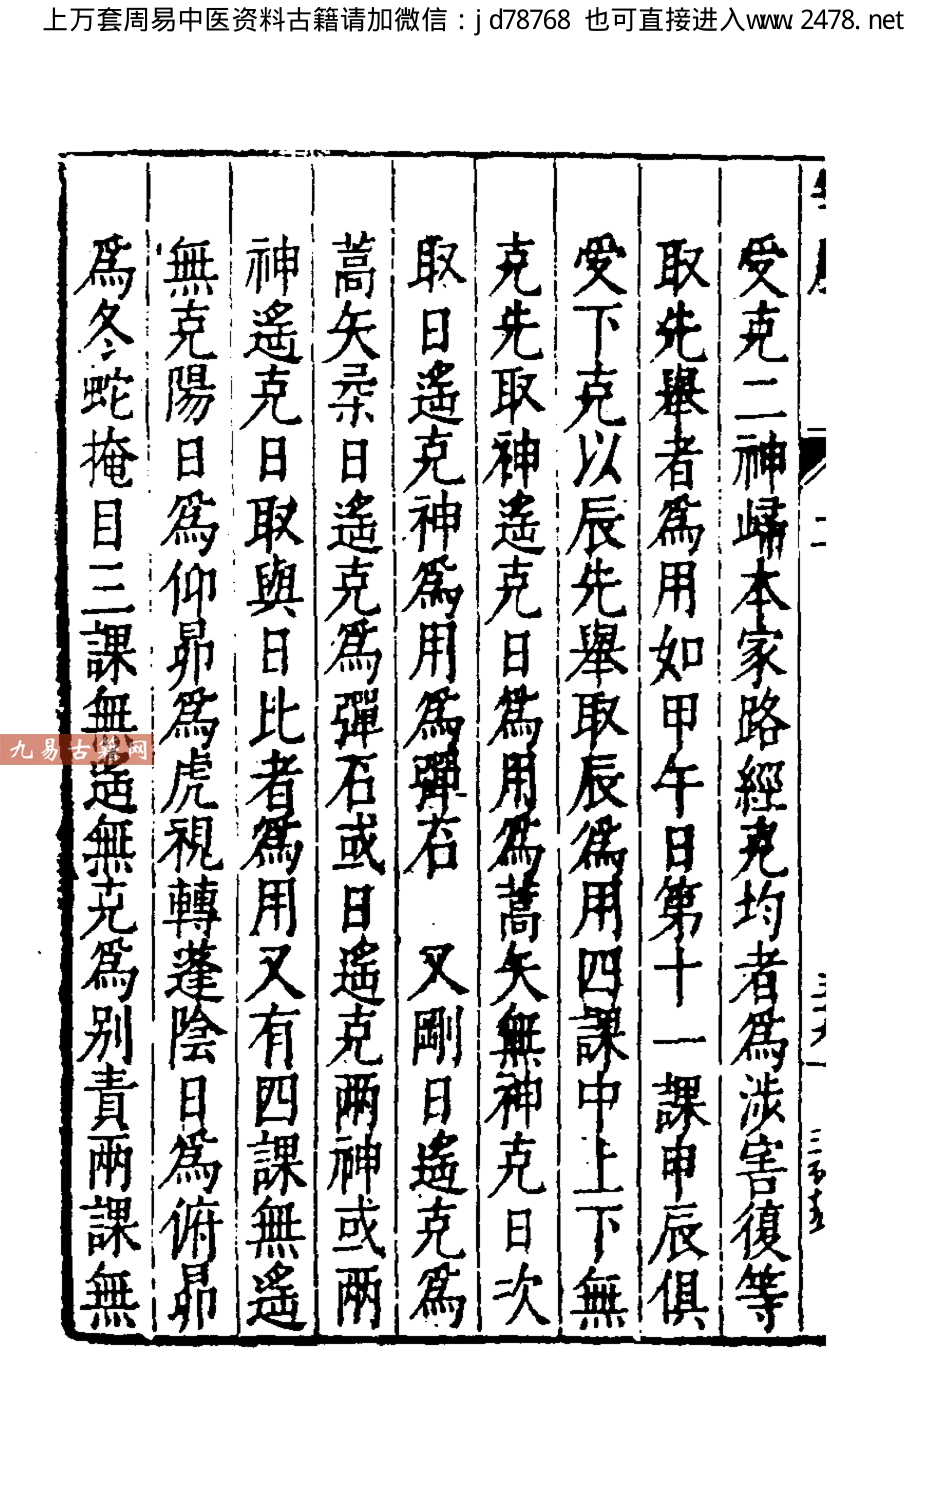 上万套周易中医资料古籍请加微信：jd78768 也可直接进入www.2478.net
受克二神歸本家路經克均者爲涉害復等
取先舉者爲用如甲午日第十一課申辰俱
受下克以辰先舉取辰爲用四課中上下無
克先取神遙克日爲用爲蒿矢無神克日次
取日遙克神爲用爲彈石 又剛日遙克爲
蒿矢柔日遙克爲彈石或日遙克兩神或兩
神遙克日取與日比者爲用又有四課無遙
無克陽日爲仰昴爲虎視轉蓬陰日爲俯昴
爲冬蛇掩目三課無遙無克爲别責兩課無
九易古籍网